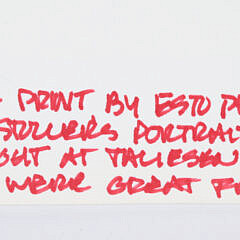 PRINT BY ESTO P
STOLLERS PORTRA
OUT AT TALIESEN
WERE GREAT F